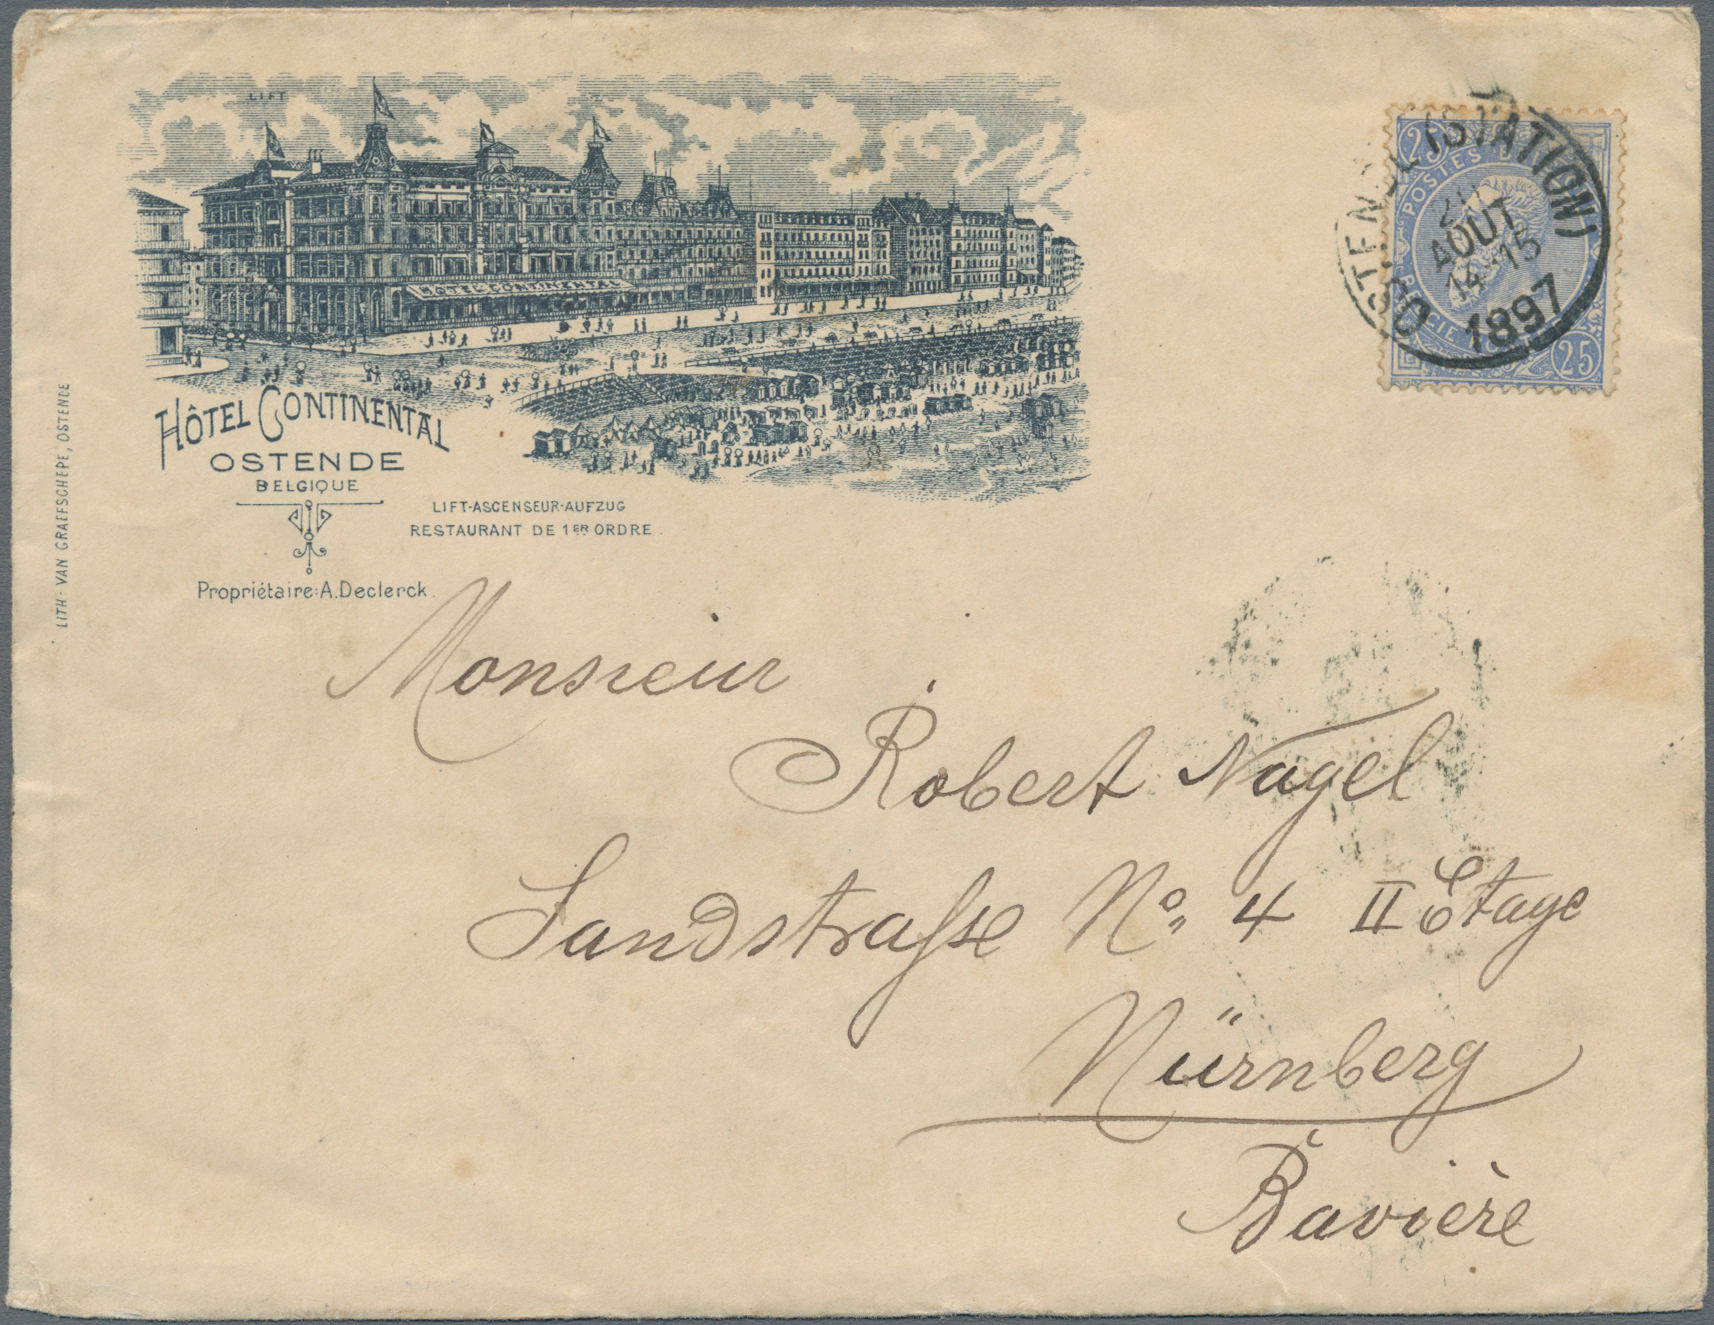 LIFT
HÔTEL CONTINENTAL
HÔTEL CONTINENTAL
OSTENDE
BELGIQUE
LIFT-ASCENSEUR-AUFZUG
RESTAURANT DE 1ER ORDRE.
Propriétaire: A. Declerck.
LITH. VAN GRAEFSCHEPE, OSTENDE
OSTENDE (STATION)
21
AOUT
14-15
1897
25
POSTES
25
Monsieur
Robert Nagel
Sandstraſse No. 4 II Etage
Nürnberg
Bavière